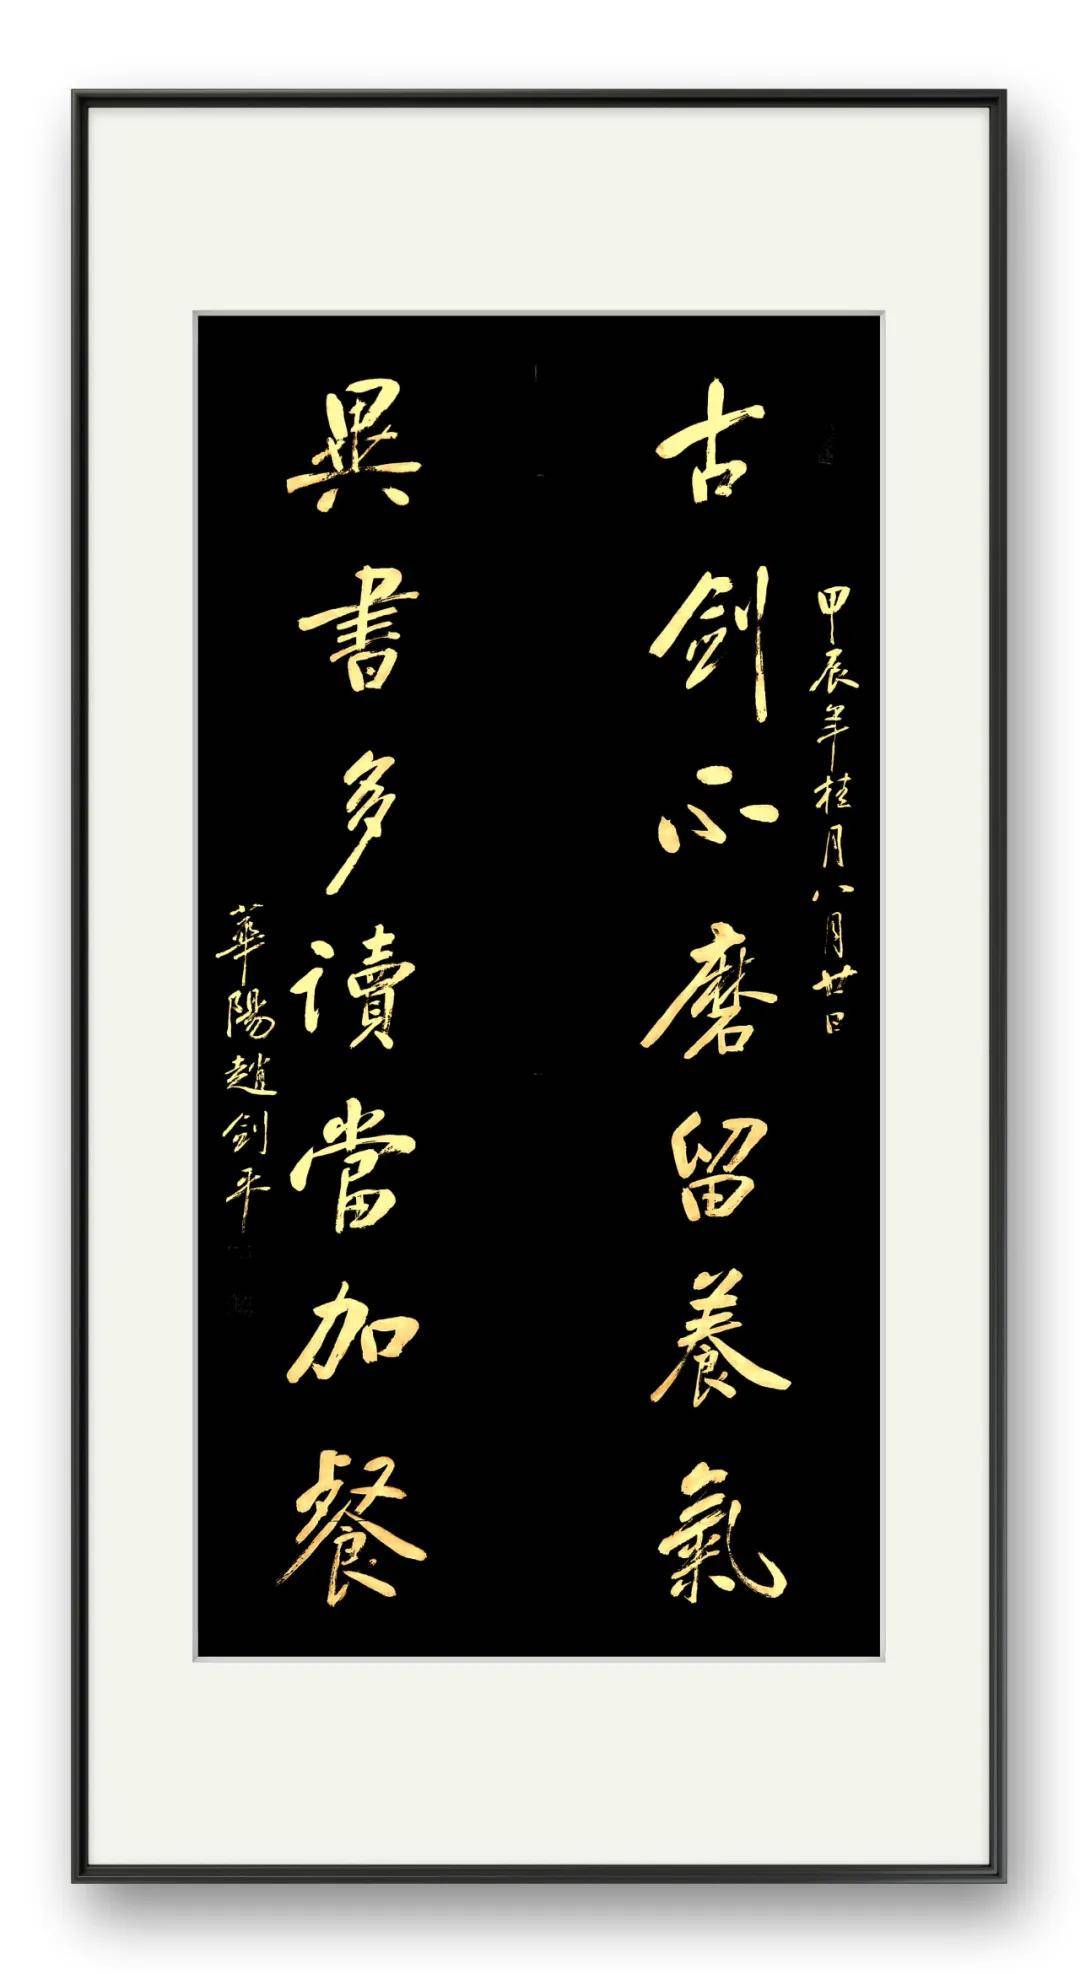 甲辰年桂月八月廿日
古劍不磨留養氣
異書多讀當加餐
華陽趙劍平